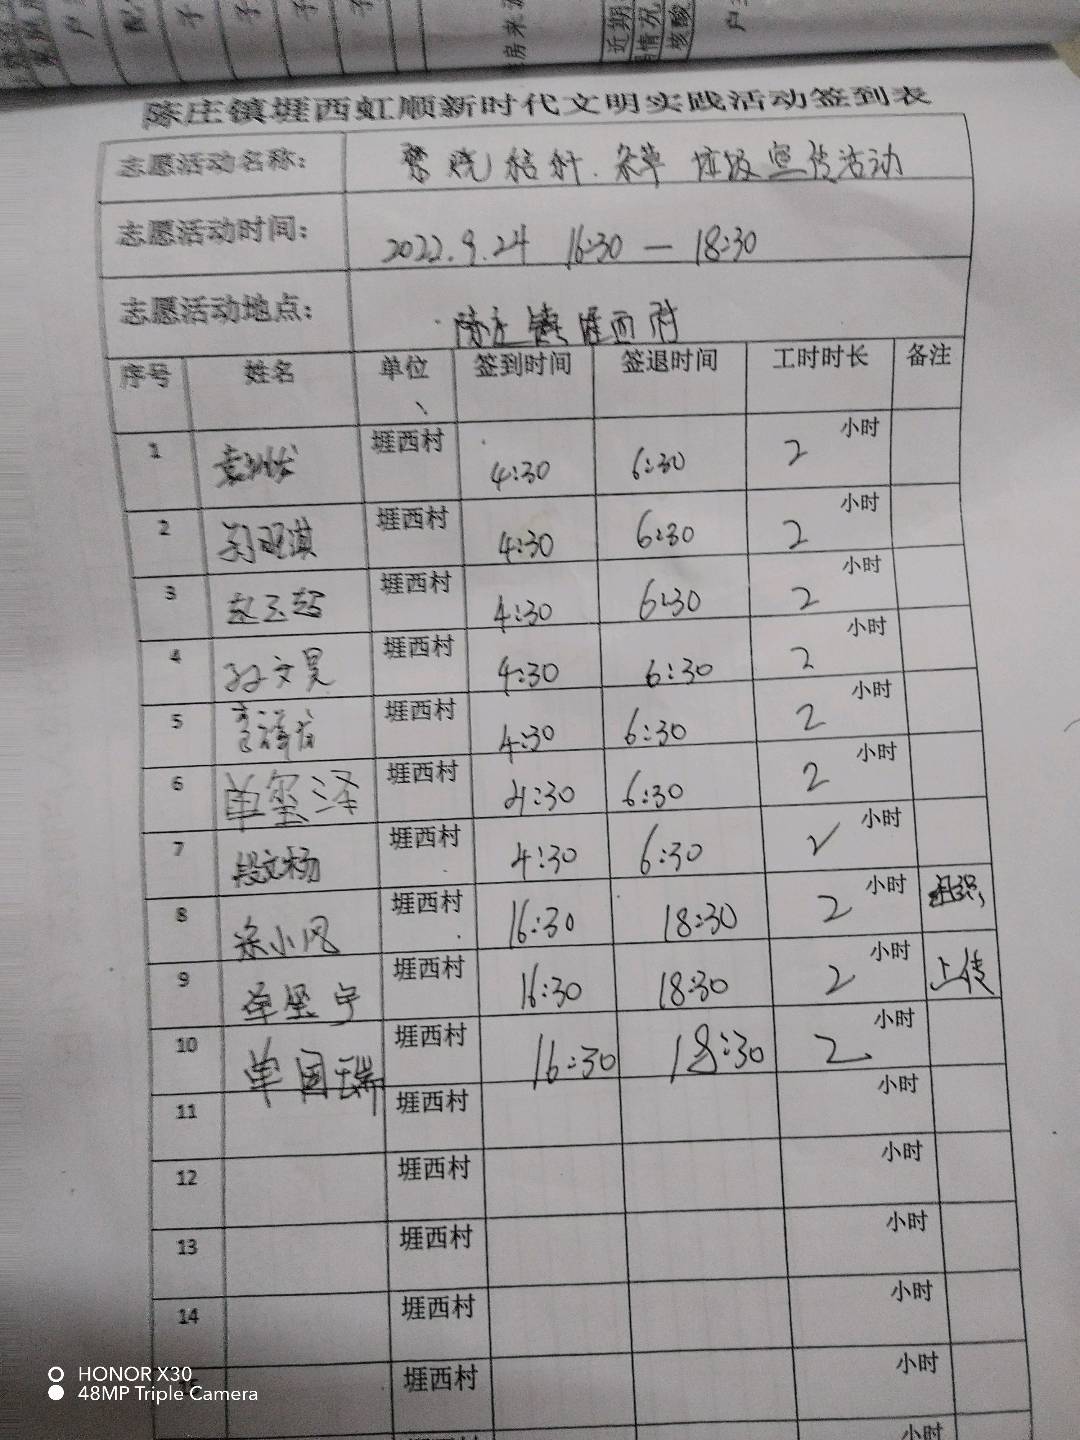 陈庄镇堐西虹顺新时代文明实践活动签到表
志愿活动名称： 禁烧秸秆.杂草 垃圾宣传活动
志愿活动时间： 2022.9.24 16:30 — 18:30
志愿活动地点： 陈庄镇堐西村
序号 姓名 单位 签到时间 签退时间 工时时长 备注
1 堐西村 4:30 6:30 2 小时
2 堐西村 4:30 6:30 2 小时
3 堐西村 4:30 6:30 2 小时
4 孙文昊 堐西村 4:30 6:30 2 小时
5 堐西村 4:30 6:30 2 小时
6 单玺泽 堐西村 4:30 6:30 2 小时
7 段文杨 堐西村 4:30 6:30 2 小时
8 徐小风 堐西村 16:30 18:30 2 小时 组织,
9 单玺宇 堐西村 16:30 18:30 2 小时 上传
10 单国瑞 堐西村 16:30 18:30 2 小时
11 堐西村 小时
12 堐西村 小时
13 堐西村 小时
14 堐西村 小时
15 堐西村 小时
小时
HONOR X30
48MP Triple Camera